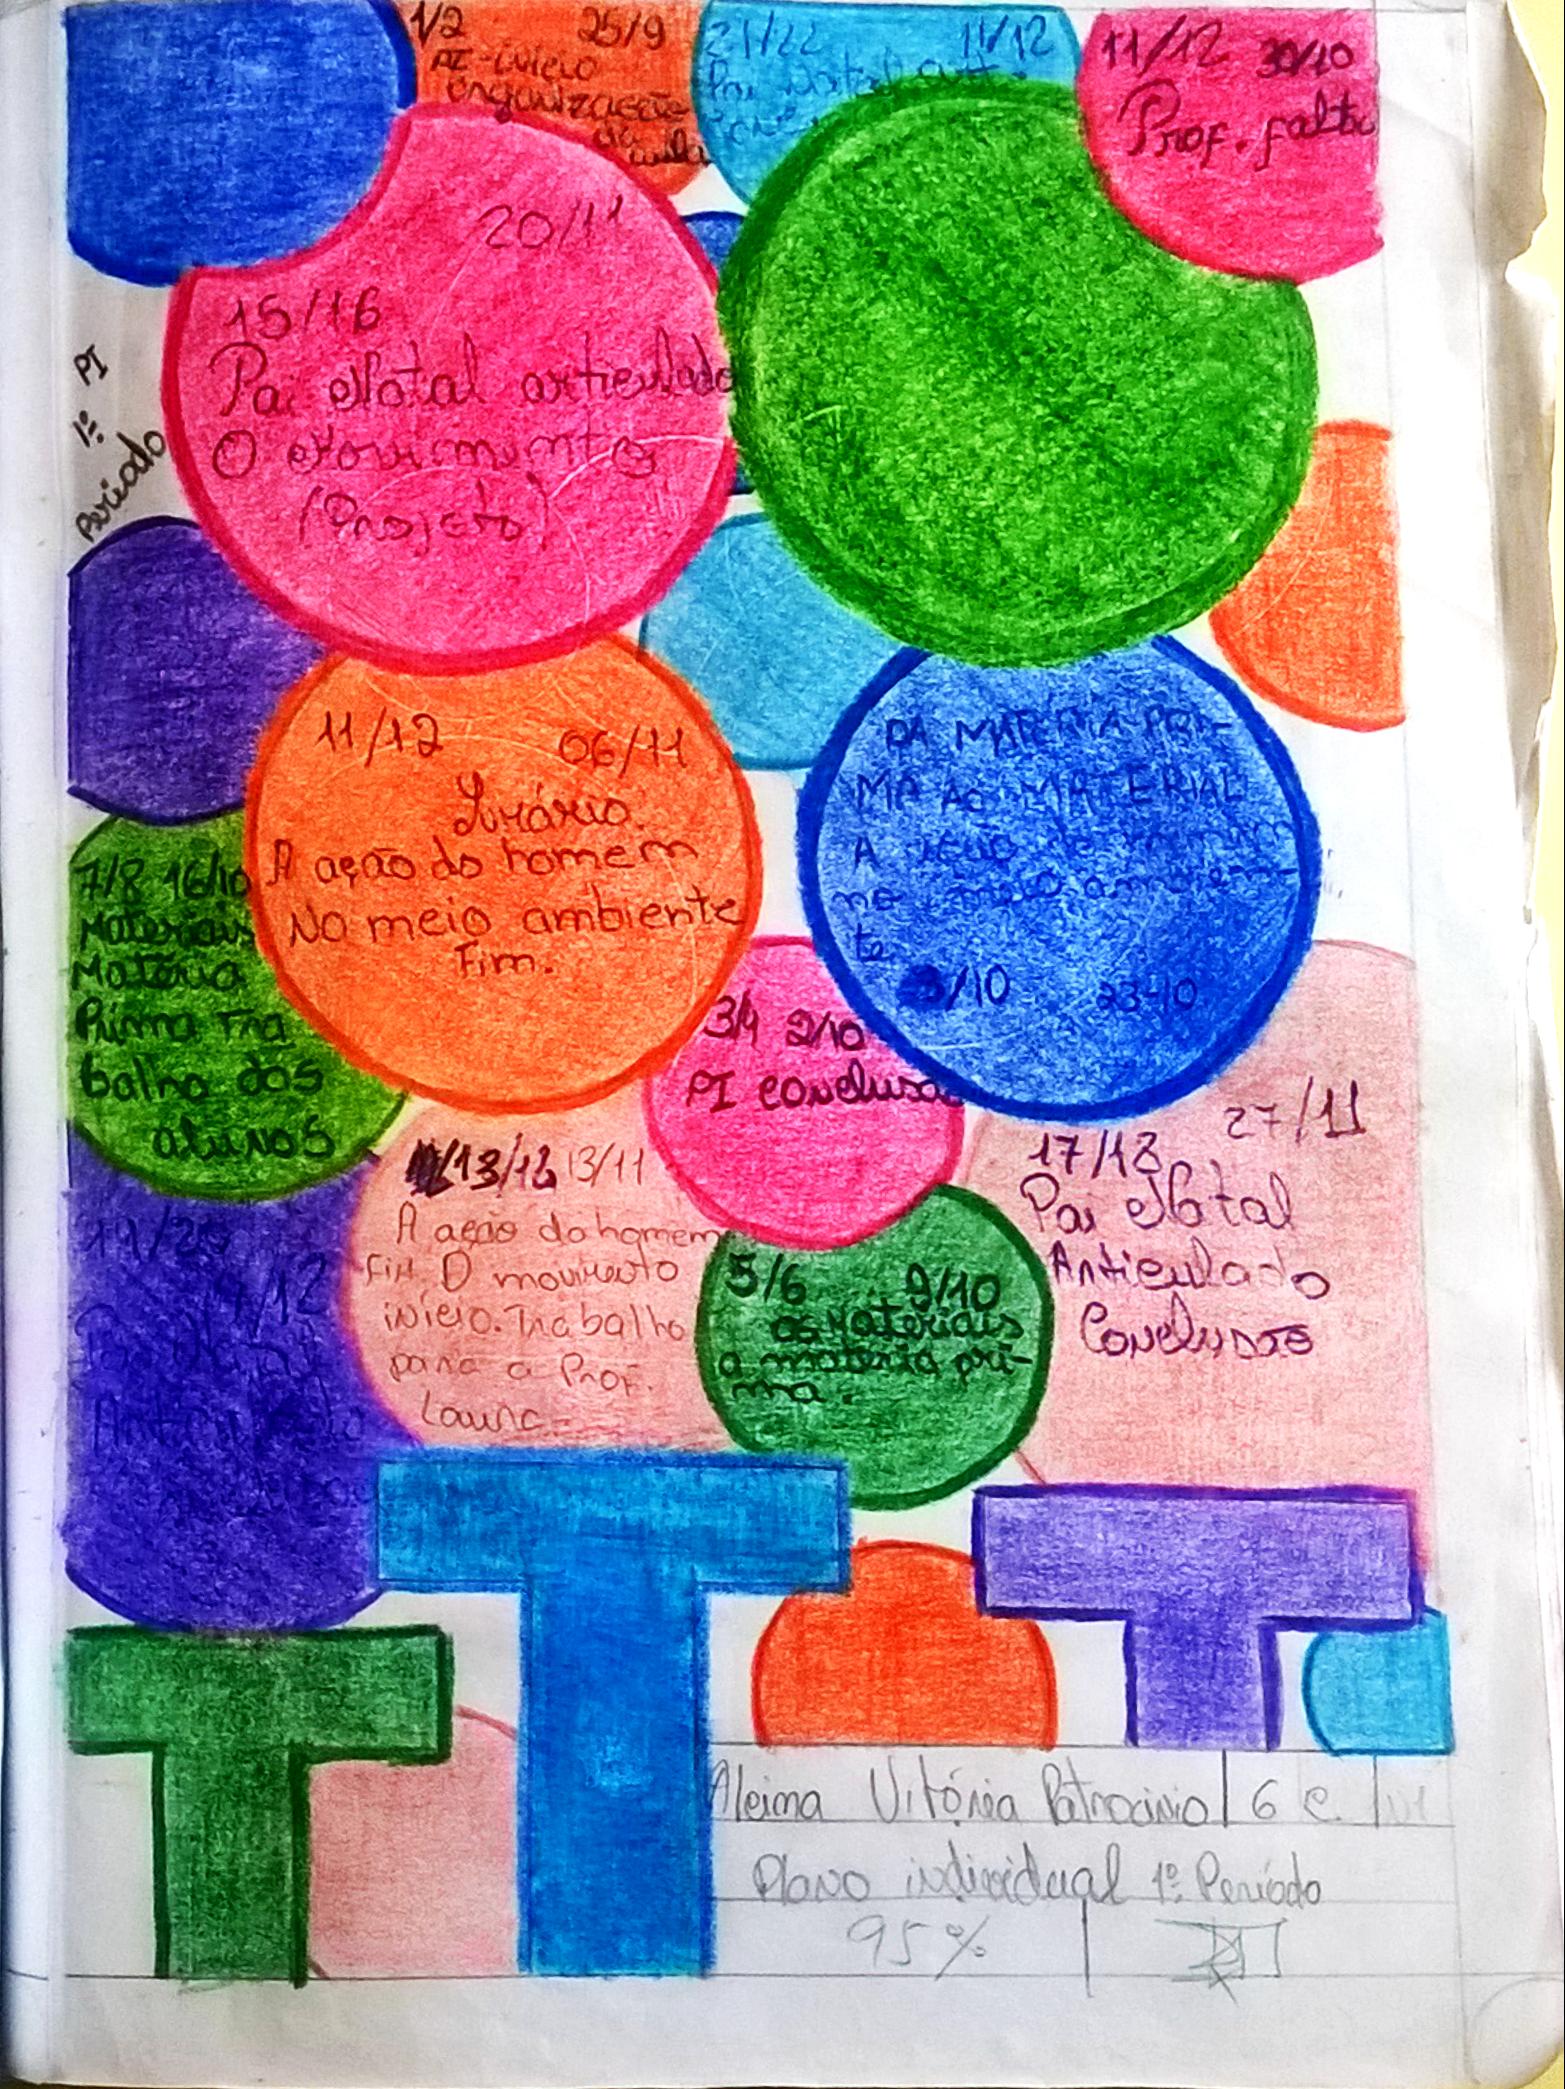 1/2 25/9
PI-início
organização
da aula
21/22 11/12
Pai Natal
11/12 30/10
Prof. falta
20/11
15/16
Pai Natal articulado
O Movimento
(Projeto)
PI
1º
Período
11/12 06/11
A ação do homem
No meio ambiente
Fim.
DA MATERIA PRI-
MA AO MATERIAL
A ação do homem
no meio ambien-
te
9/10 23-10
7/8 16/10
Materiais
Matéria
Prima Tra
balho dos
alunos
3/4 2/10
PI conclusão
13/12 13/11
A ação do homem
Fim. O movimento
início. Trabalho
para a Prof.
Laura
5/6 9/10
os Materiais
a materia pri-
ma.
27/11
17/18
Pai Natal
Anticulado
Conclusão
19/20
4/12
Pai Natal
Articulado
Aleima Vitória Patrocinio 6 C
Plano individual 1º Período
95%